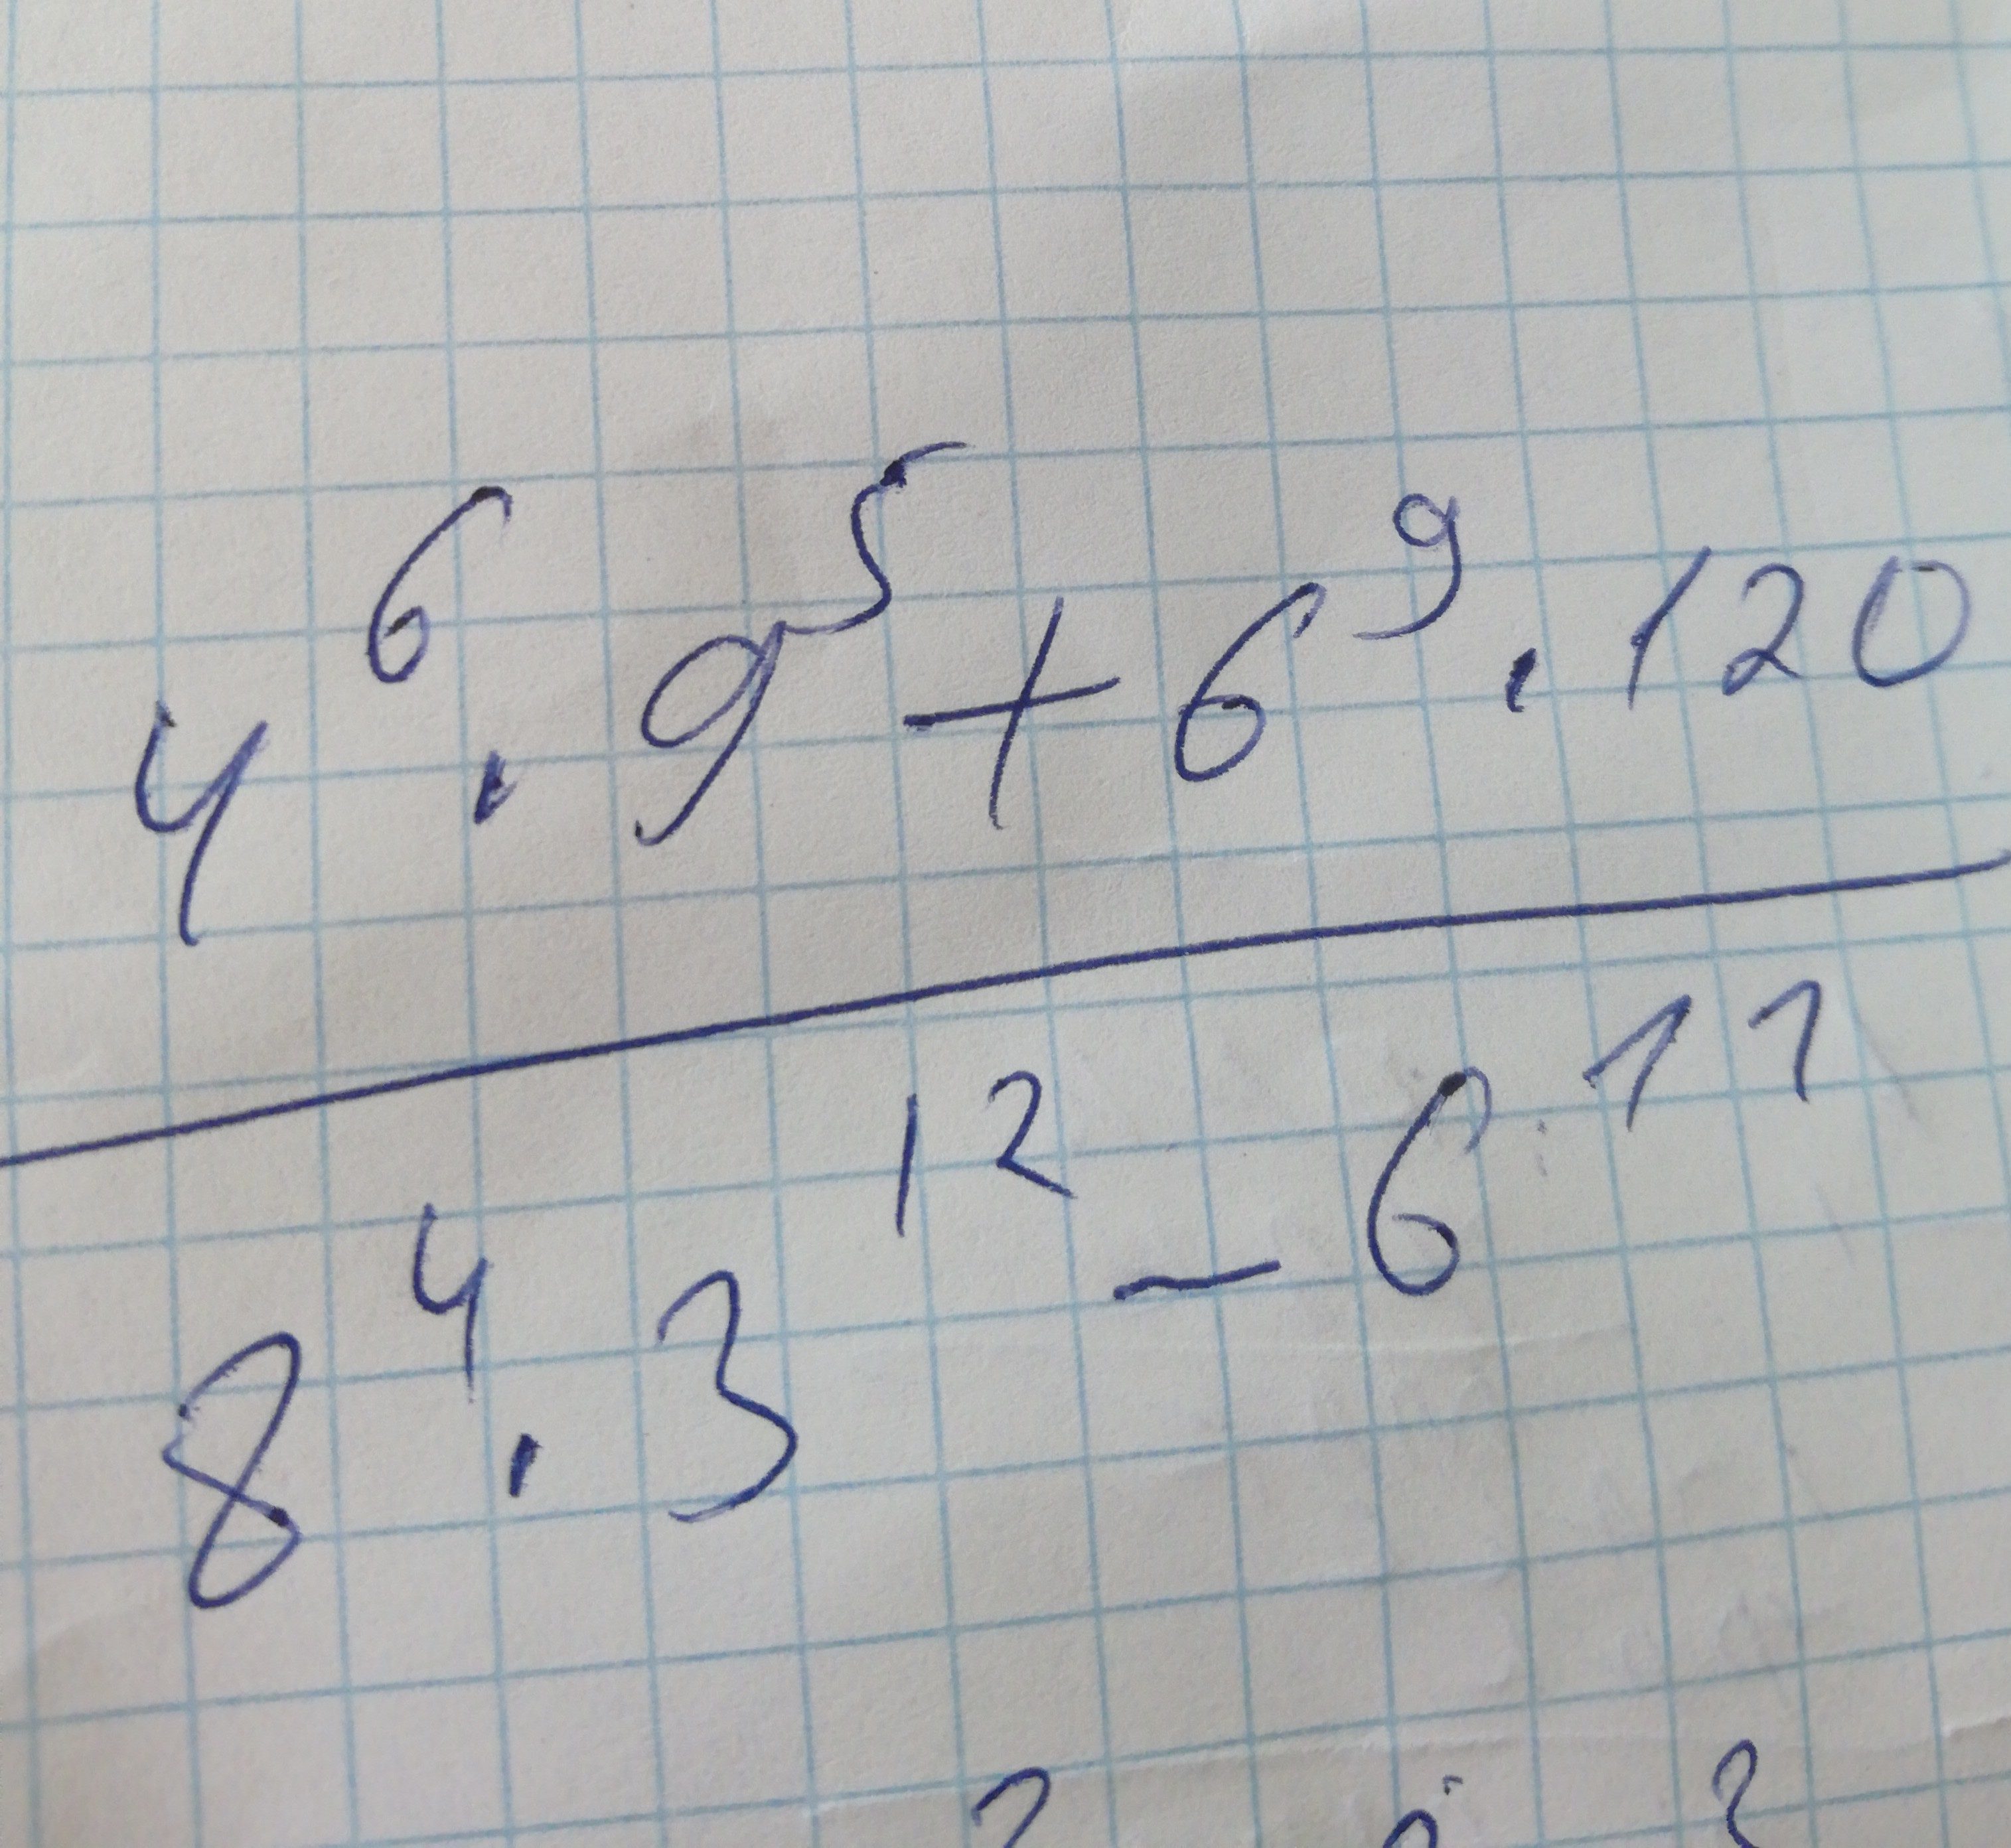 4⁶ · 9⁵ + 6⁹ · 120
8⁴ · 3¹² - 6¹¹